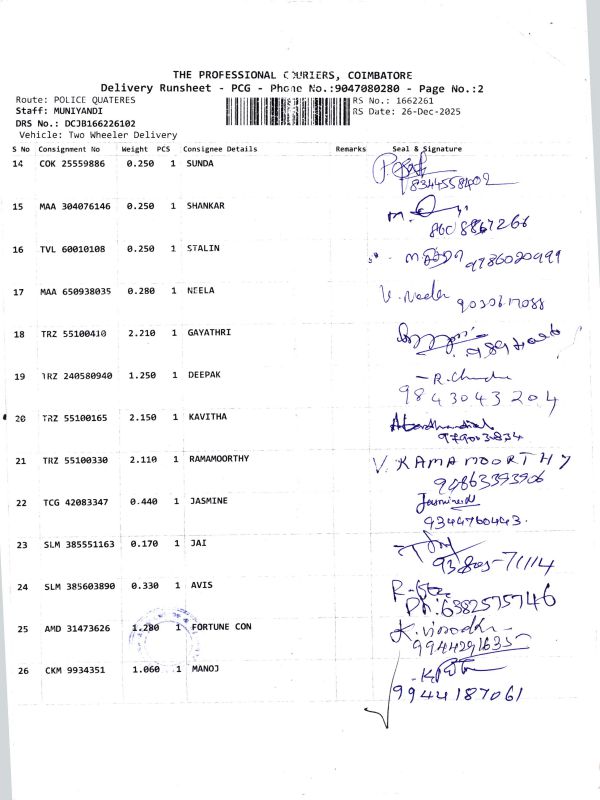 THE PROFESSIONAL COURIERS, COIMBATORE
Delivery Runsheet - PCG - Phone No.:9047080280 - Page No.:2
Route: POLICE QUATERES RS No.: 1662261
Staff: MUNIYANDI RS Date: 26-Dec-2025
DRS No.: DCJB166226102
Vehicle: Two Wheeler Delivery
S No Consignment No Weight PCS Consignee Details Remarks Seal & Signature
14 COK 25559886 0.250 1 SUNDA
8344558402
15 MAA 304076146 0.250 1 SHANKAR
8608867266
16 TVL 60010108 0.250 1 STALIN
9786020999
17 MAA 650938035 0.280 1 NEELA
V. Neela
18 TRZ 55100410 2.210 1 GAYATHRI
19 TRZ 240580940 1.250 1 DEEPAK
- R. Chandra
9843043204
20 TRZ 55100165 2.150 1 KAVITHA
21 TRZ 55100330 2.110 1 RAMAMOORTHY
V. RAMAMOORTHY
22 TCG 42083347 0.440 1 JASMINE
Jasmine
9344760443.
23 SLM 385551163 0.170 1 JAI
93805-71114
24 SLM 385603890 0.330 1 AVIS
Ph: 6382575746
25 AMD 31473626 1.280 1 FORTUNE CON
K. Vinodh
9944291635
26 CKM 9934351 1.060 1 MANOJ
9944187061